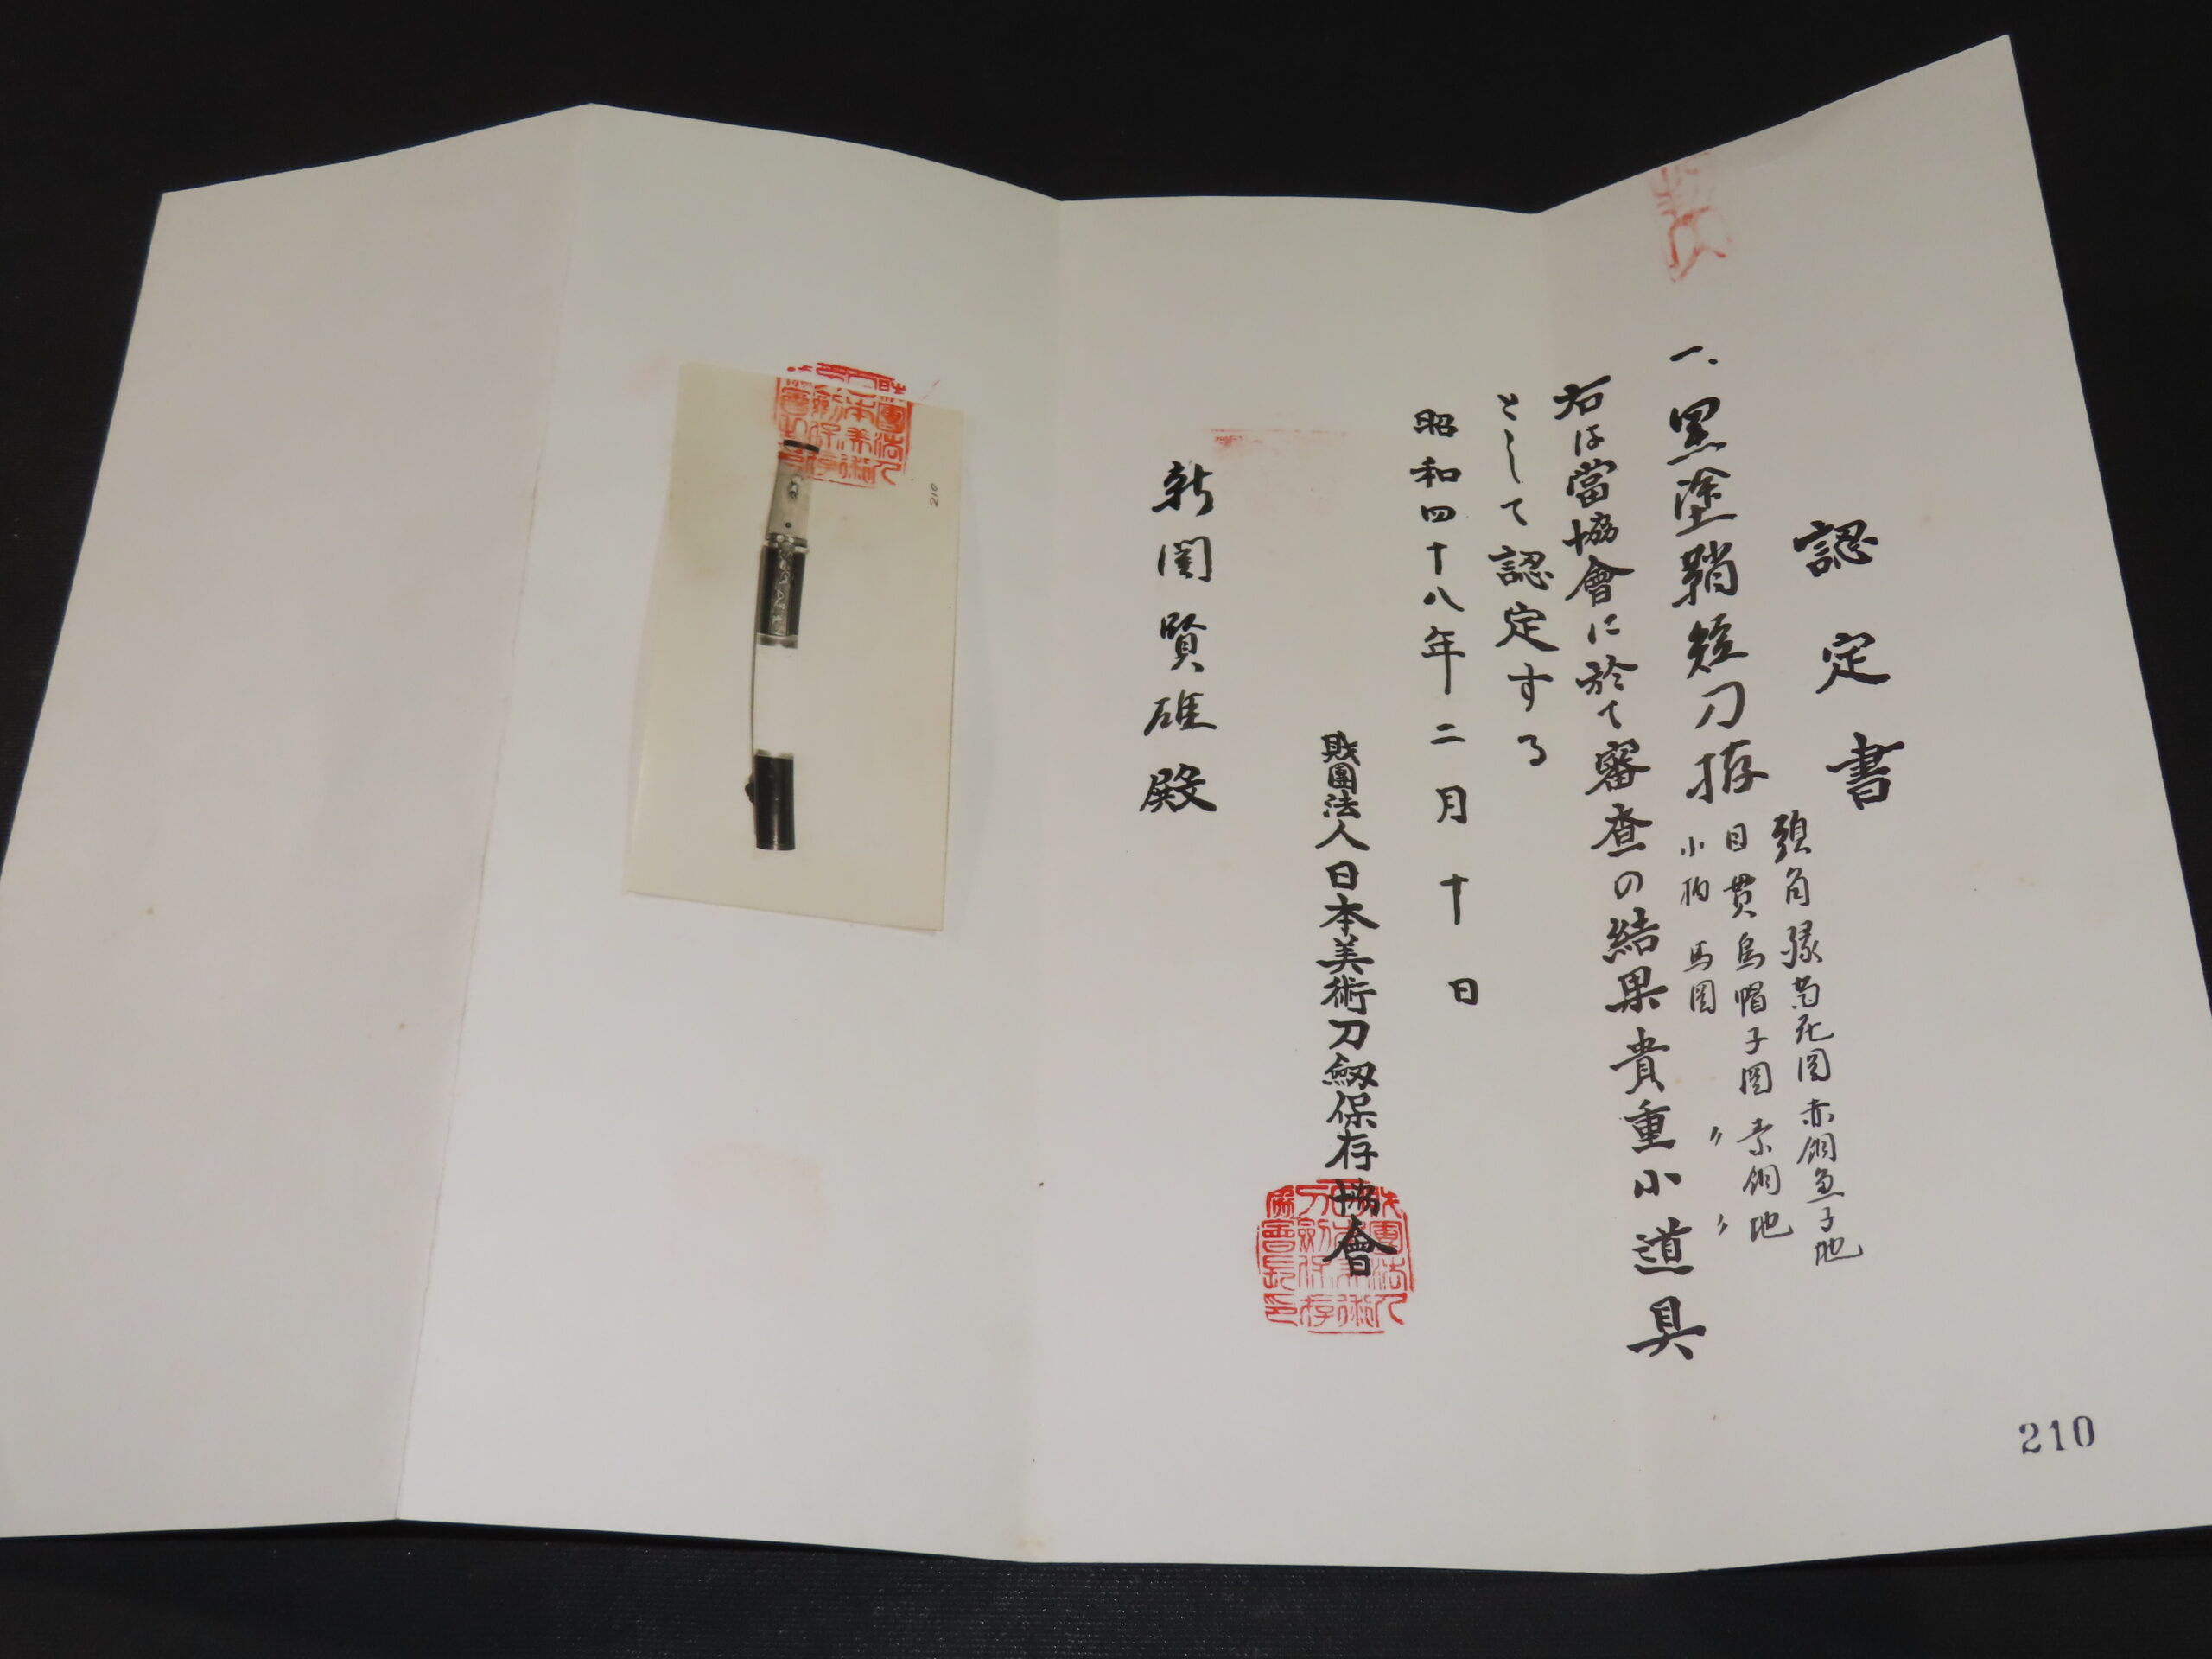 認定書
一、黒塗鞘短刀拵
頭角縁菊花図赤銅魚子地
目貫烏帽子図素銅地
小柄馬図〃〃
右は當協會に於て審査の結果貴重小道具
として認定する
昭和四十八年二月十日
財團法人日本美術刀劔保存協會
新関賢雄殿
210
210